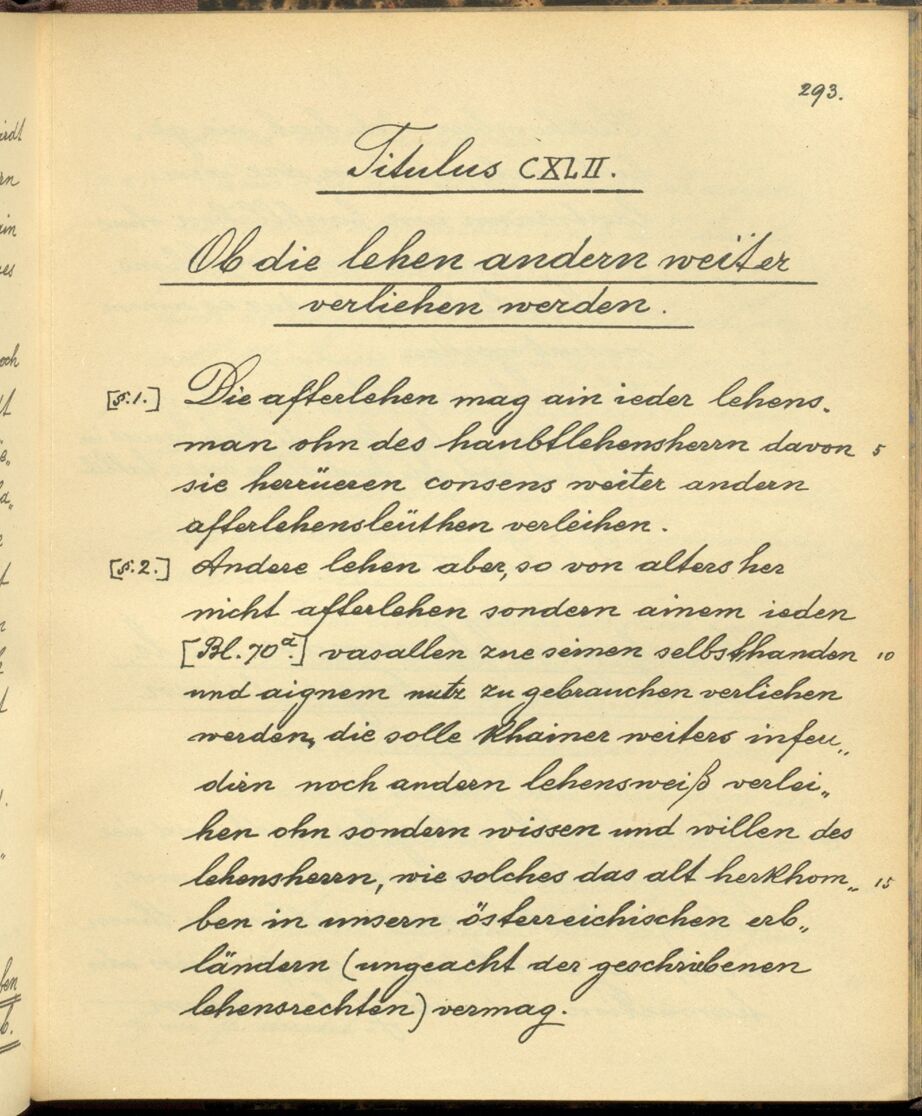 293.
Titulus CXLII.
Ob die lehen andern weiter
verliehen werden.
[§.1.] Die afterlehen mag ain ieder lehens-
man ohn des haubtlehensherrn davon 5
sie herrüeren consens weiter andern
afterlehensleüthen verleihen.
[§.2.] Andere lehen aber, so von alters her
nicht afterlehen sondern ainem ieden
[Bl. 70a.] vasallen zue seinen selbsthanden 10
und aignem nutz zu gebrauchen verliehen
werden, die solle khainer weiters infeu„
dirn noch andern lehensweiß verlei„
hen ohn sondern wissen und willen des
lehensherrn, wie solches das alt herkhom„ 15
ben in unsern österreichischen erb„
ländern (ungeacht der geschribenen
lehensrechten) vermag.